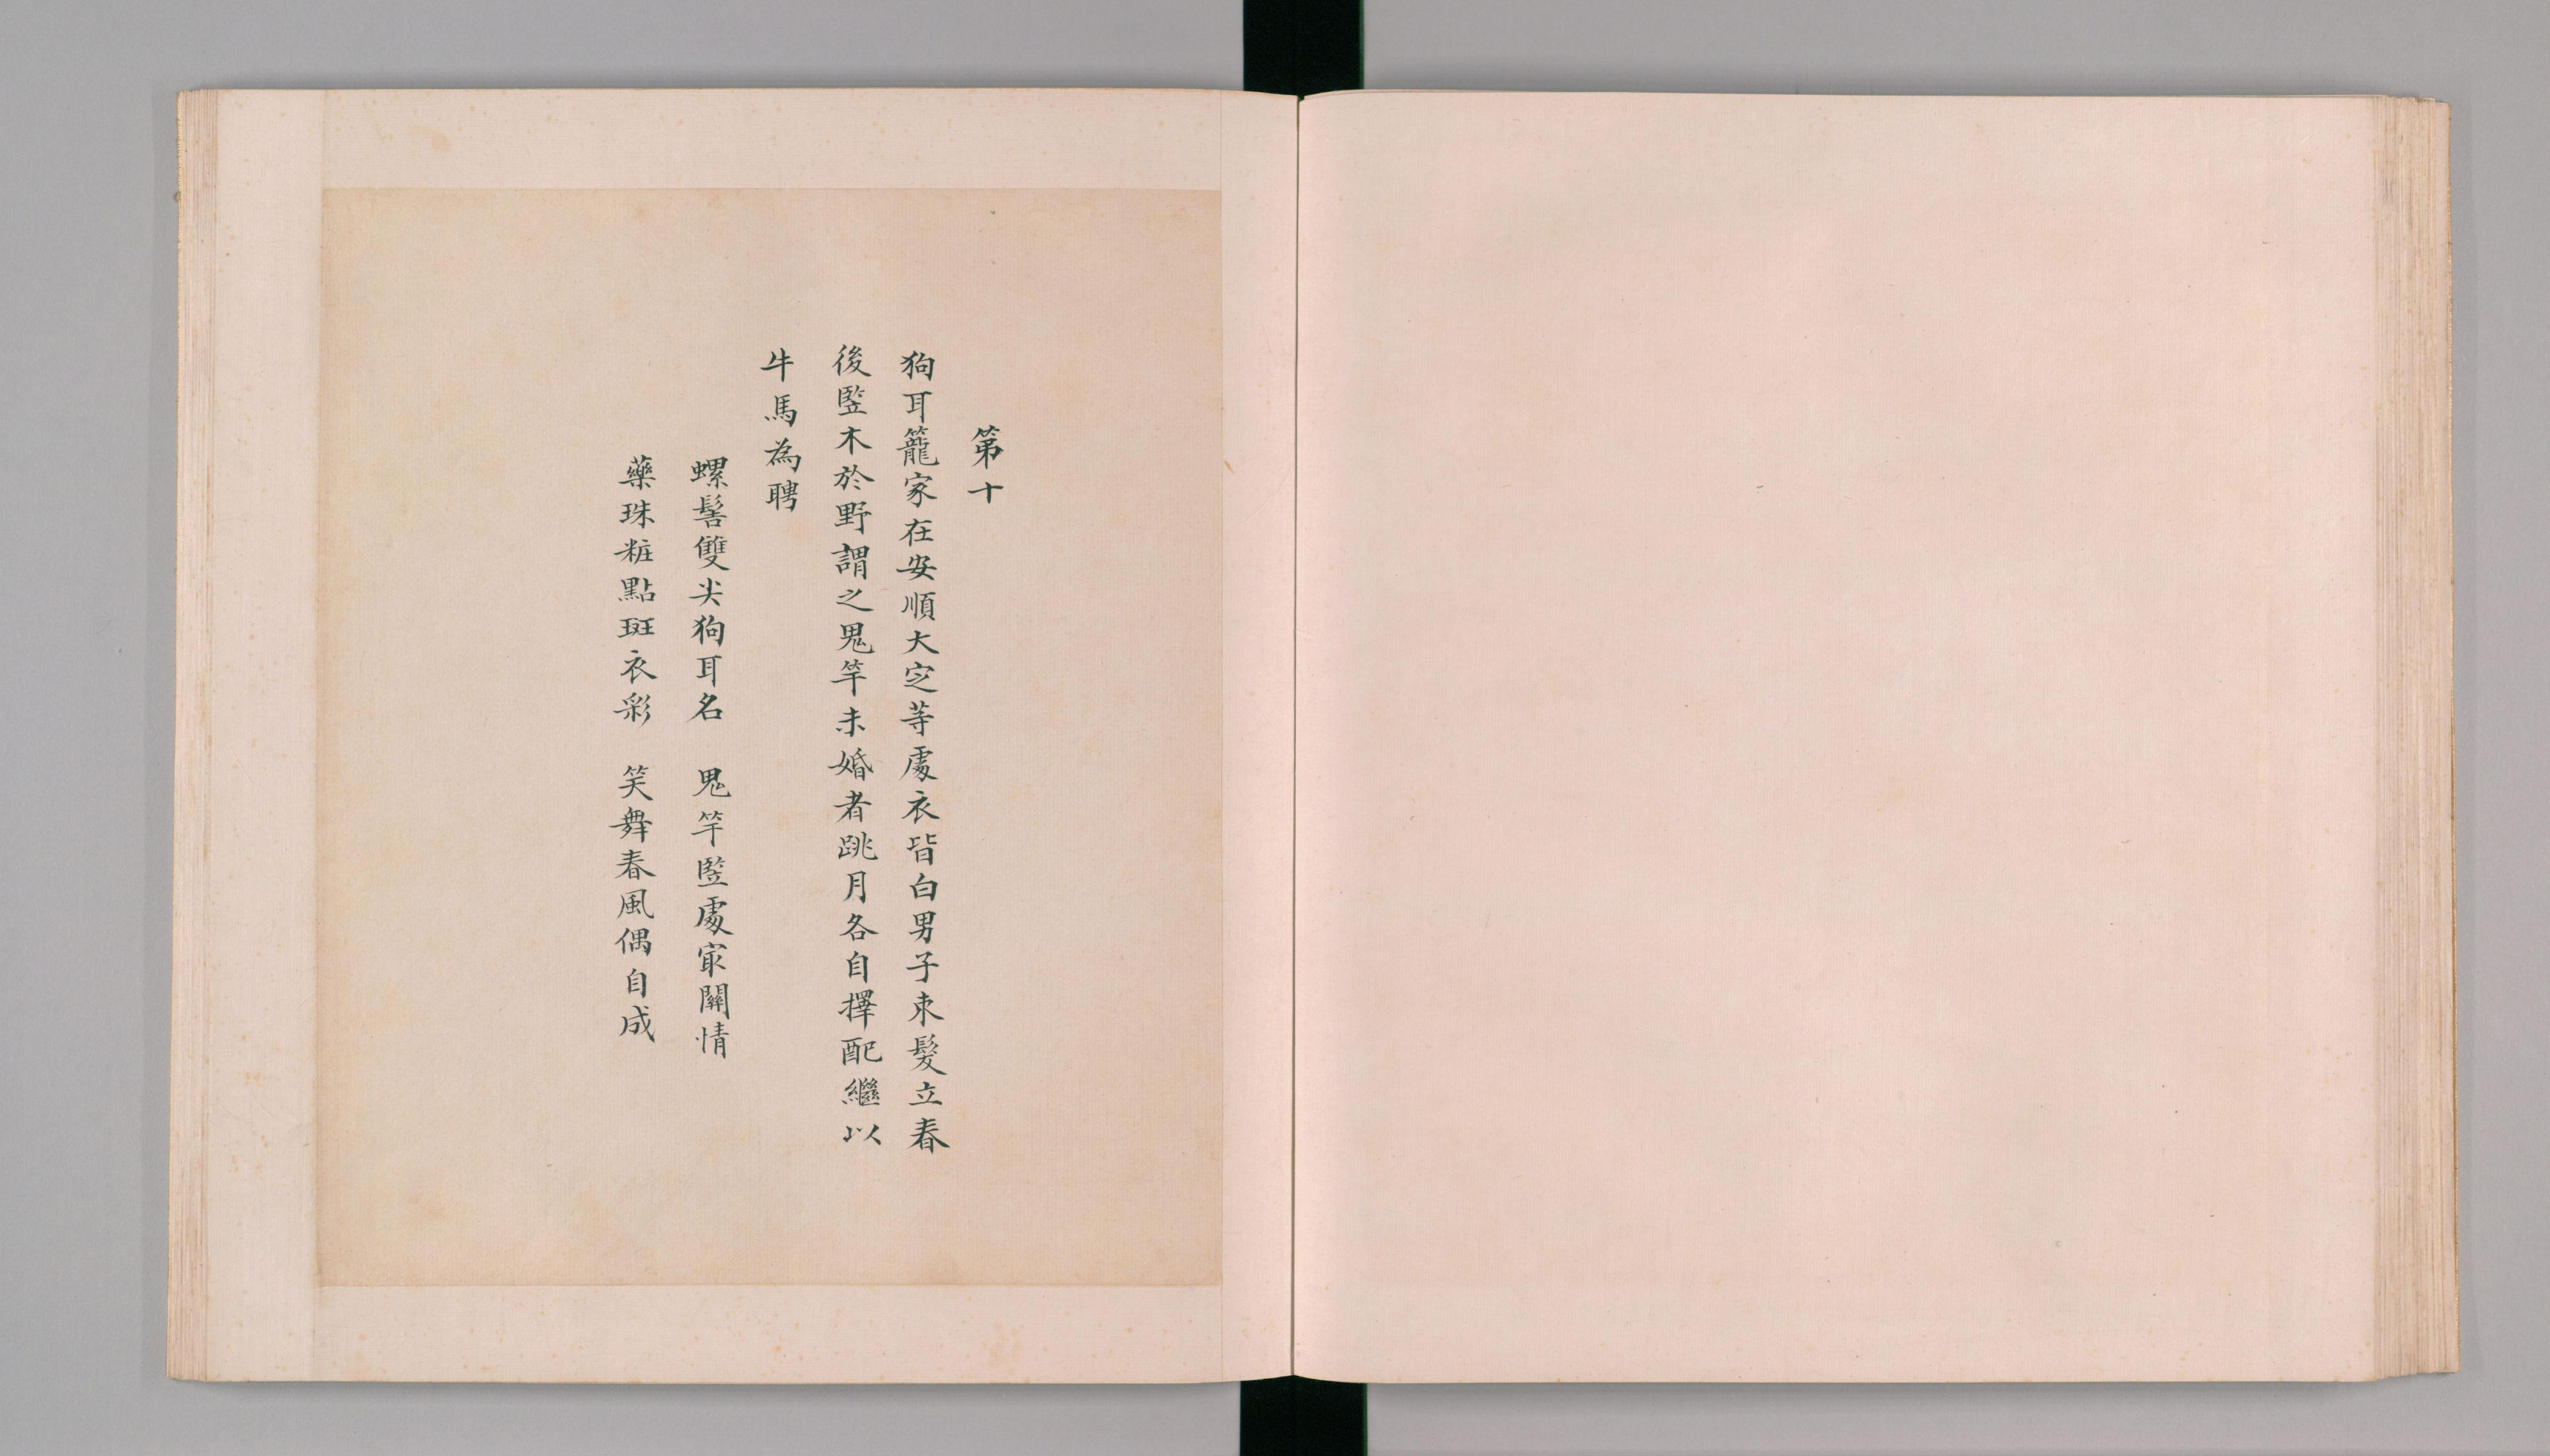 第十
狗耳籠家在安順大定等處衣皆白男子束髮立春
後竪木於野謂之鬼竿未婚者跳月各自擇配繼以
牛馬為聘
螺髻雙尖狗耳名　鬼竿竪處冣關情
藥珠粧點斑衣彩　笑舞春風偶自成